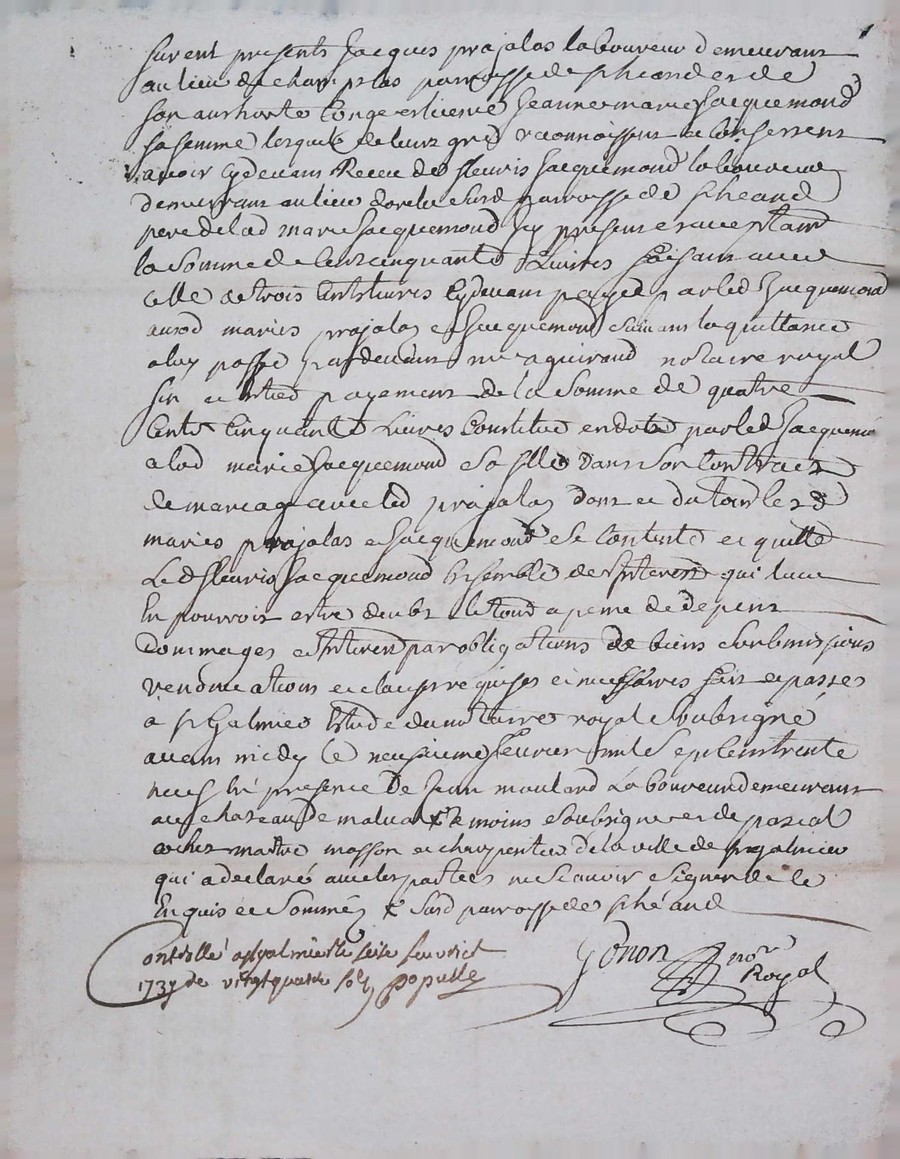 furent presents Jacques prajalas laboureur demeurant
au lieu de parroisse de st heand et de
son authorité conge et licence Jeanne marie Jacquemond
sa femme lesquels de leurs gred reconnoissent et confessent
avoir cydevant Receu de fleuris Jacquemond laboureur
demeurant au lieu parroisse de st heand
pere de lad marie Jacquemond icy present et acceptant
la somme de cent cinquante Livres faisant avec
celle de trois cents livres cydevant payee par led Jacquemond
ausd maries prajalas et Jacquemond suivant la quittance
a luy passé pardevant me aguiraud notaire royal
fin et entied payement de la somme de quatre
cents cinquante Livres constitué en dote par led Jacquemo
a lad marie Jacquemond sa fille dans son contract
de mariage avec led prajalas dont et du tout lesd
maries prajalas et Jacquemond se contente et quitte
Led fleuris Jacquemond ensemble de l'interest qui luy
En pourroit estre deubt le tout a peine de depens
dommages et interest par obligations de biens soubmissions
renonciations et clauses requises et necessaires fait et passés
à st Galmier Estude du notaire royal soubsigné
avant midy le neufieme feurier mil sept cent trente
neuf En presence de Jean moulard Laboureur demeurant
au chateau de malval temoins soubsigne et de pascal
ocher maitre masson et charpentier de la ville de st galmier
qui a declaré avec les parties ne scavoir signer de ce
Enquis et sommés parroisse de st héand
Controllé a st galmier le seise feuvrier
1739 de vingt quatre sols populle
Gonon nore
Royal